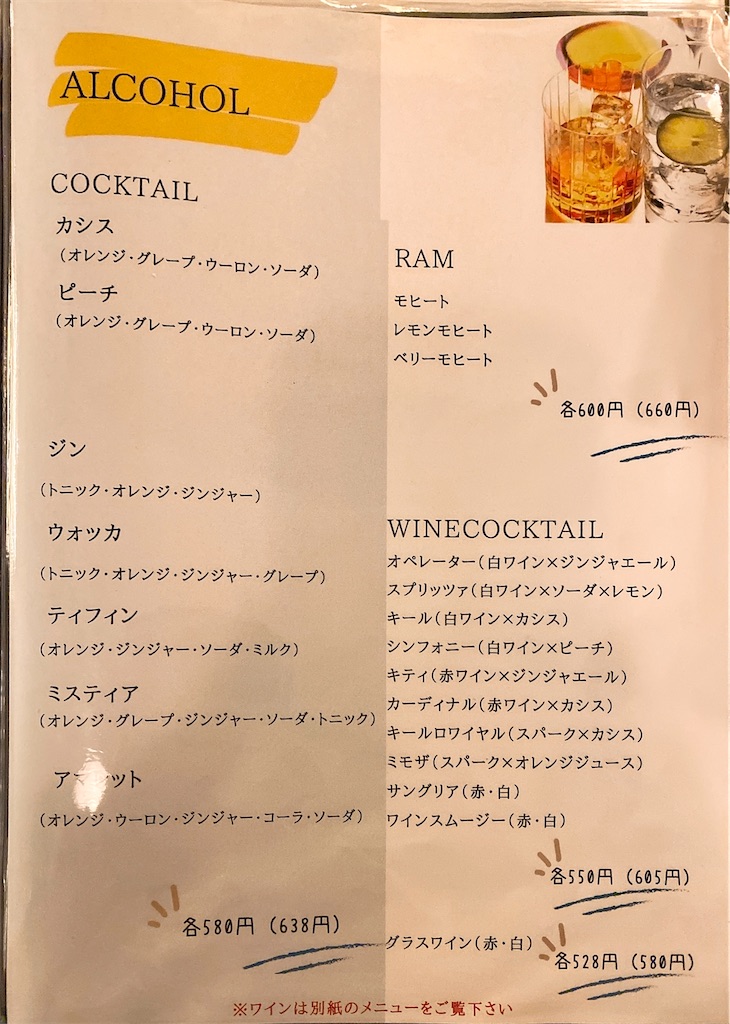 ALCOHOL
COCKTAIL
カシス
（オレンジ・グレープ・ウーロン・ソーダ）
ピーチ
（オレンジ・グレープ・ウーロン・ソーダ）
ジン
（トニック・オレンジ・ジンジャー）
ウォッカ
（トニック・オレンジ・ジンジャー・グレープ）
ティフィン
（オレンジ・ジンジャー・ソーダ・ミルク）
ミスティア
（オレンジ・グレープ・ジンジャー・ソーダ・トニック）
（オレンジ・ウーロン・ジンジャー・コーラ・ソーダ）
各580円（638円）
RAM
モヒート
レモンモヒート
ベリーモヒート
各600円（660円）
WINECOCKTAIL
オペレーター（白ワイン×ジンジャエール）
スプリッツァ（白ワイン×ソーダ×レモン）
キール（白ワイン×カシス）
シンフォニー（白ワイン×ピーチ）
キティ（赤ワイン×ジンジャエール）
カーディナル（赤ワイン×カシス）
キールロワイヤル（スパーク×カシス）
ミモザ（スパーク×オレンジジュース）
サングリア（赤・白）
ワインスムージー（赤・白）
各550円（605円）
グラスワイン（赤・白）
各528円（580円）
※ワインは別紙のメニューをご覧下さい